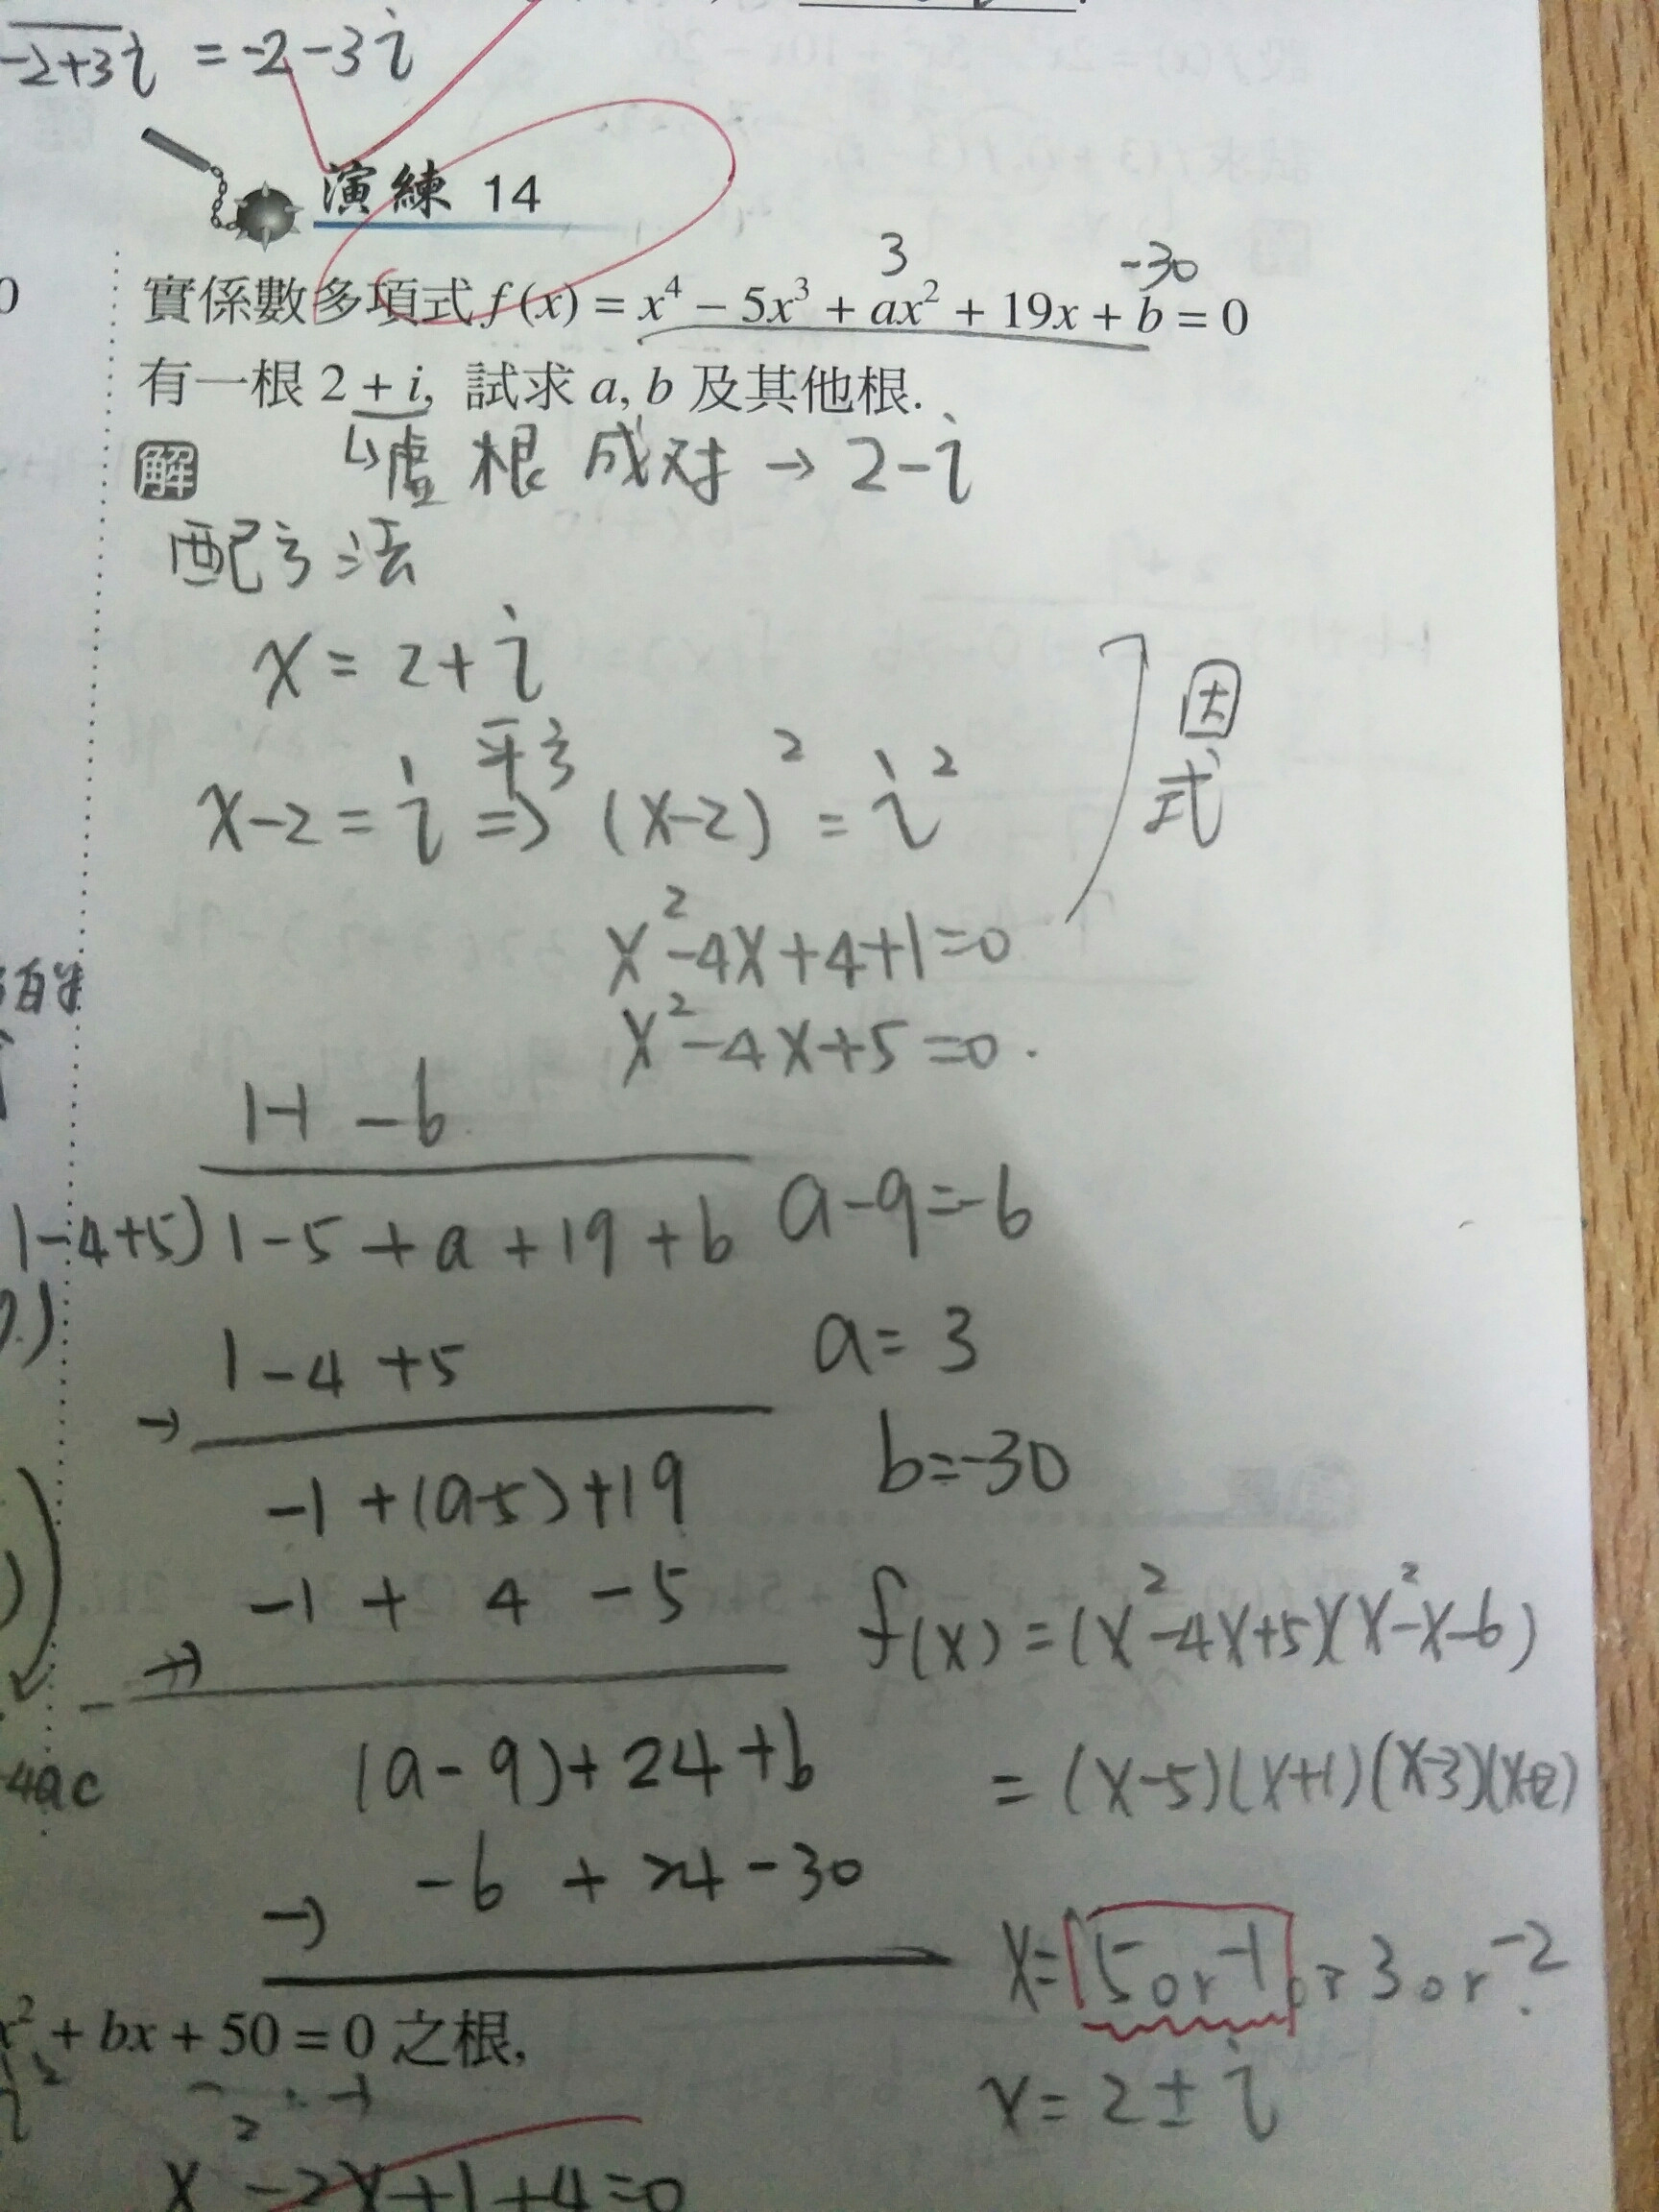 -2+3i = -2-3i
演練 14
實係數多項式 f(x) = x⁴ − 5x³ + ax² + 19x + b = 0
3
-30
有一根 2 + i, 試求 a, b 及其他根.
解
↳虛根成对 → 2-i
配方法
x = 2+i
x-2 = i ⇒ (x-2)² = i²
平方
因式
x²-4x+4+1=0
x²-4x+5=0.
1-1 -6
1-4+5) 1-5+a+19+b
a-9=-6
1-4+5
a=3
-1+(a-5)+19
b=-30
-1+4-5
f(x)=(x²-4x+5)(x²-x-6)
(a-9)+24+b
=(x-5)(x+1)(x-3)(x+2)
-6+24-30
x=5 or -1 or 3 or -2
x=2±i
4ac
x² + bx + 50 = 0 之根,
x²-2x+1+4=0